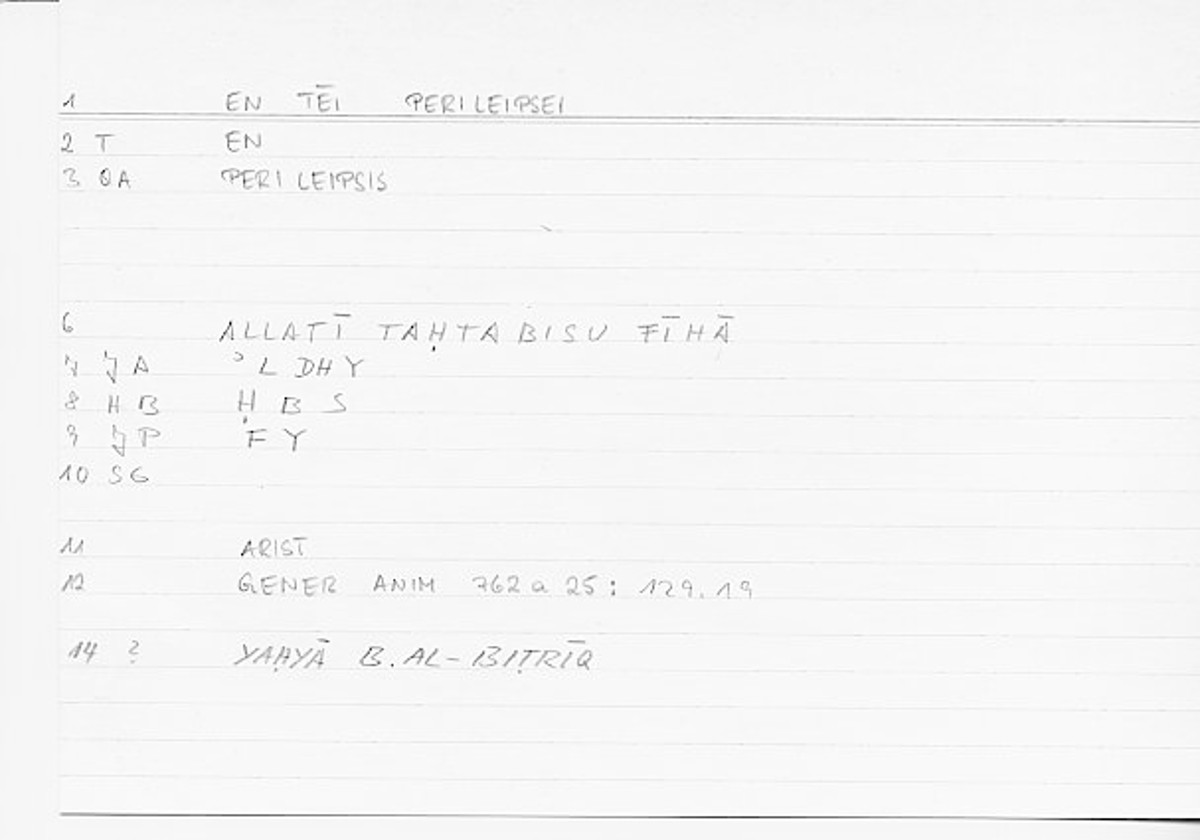 1 EN TĒI PERILEIPSEI
2 T EN
3 QA PERILEIPSIS
6 ALLATĪ TAḤTABISU FĪHĀ
7 JA ʾL DHY
8 HB Ḥ B S
9 JP FY
10 SG
11 ARIST
12 GENER ANIM 762 a 25 : 129.19
14 ? YAḤYĀ B. AL-BIṬRĪQ